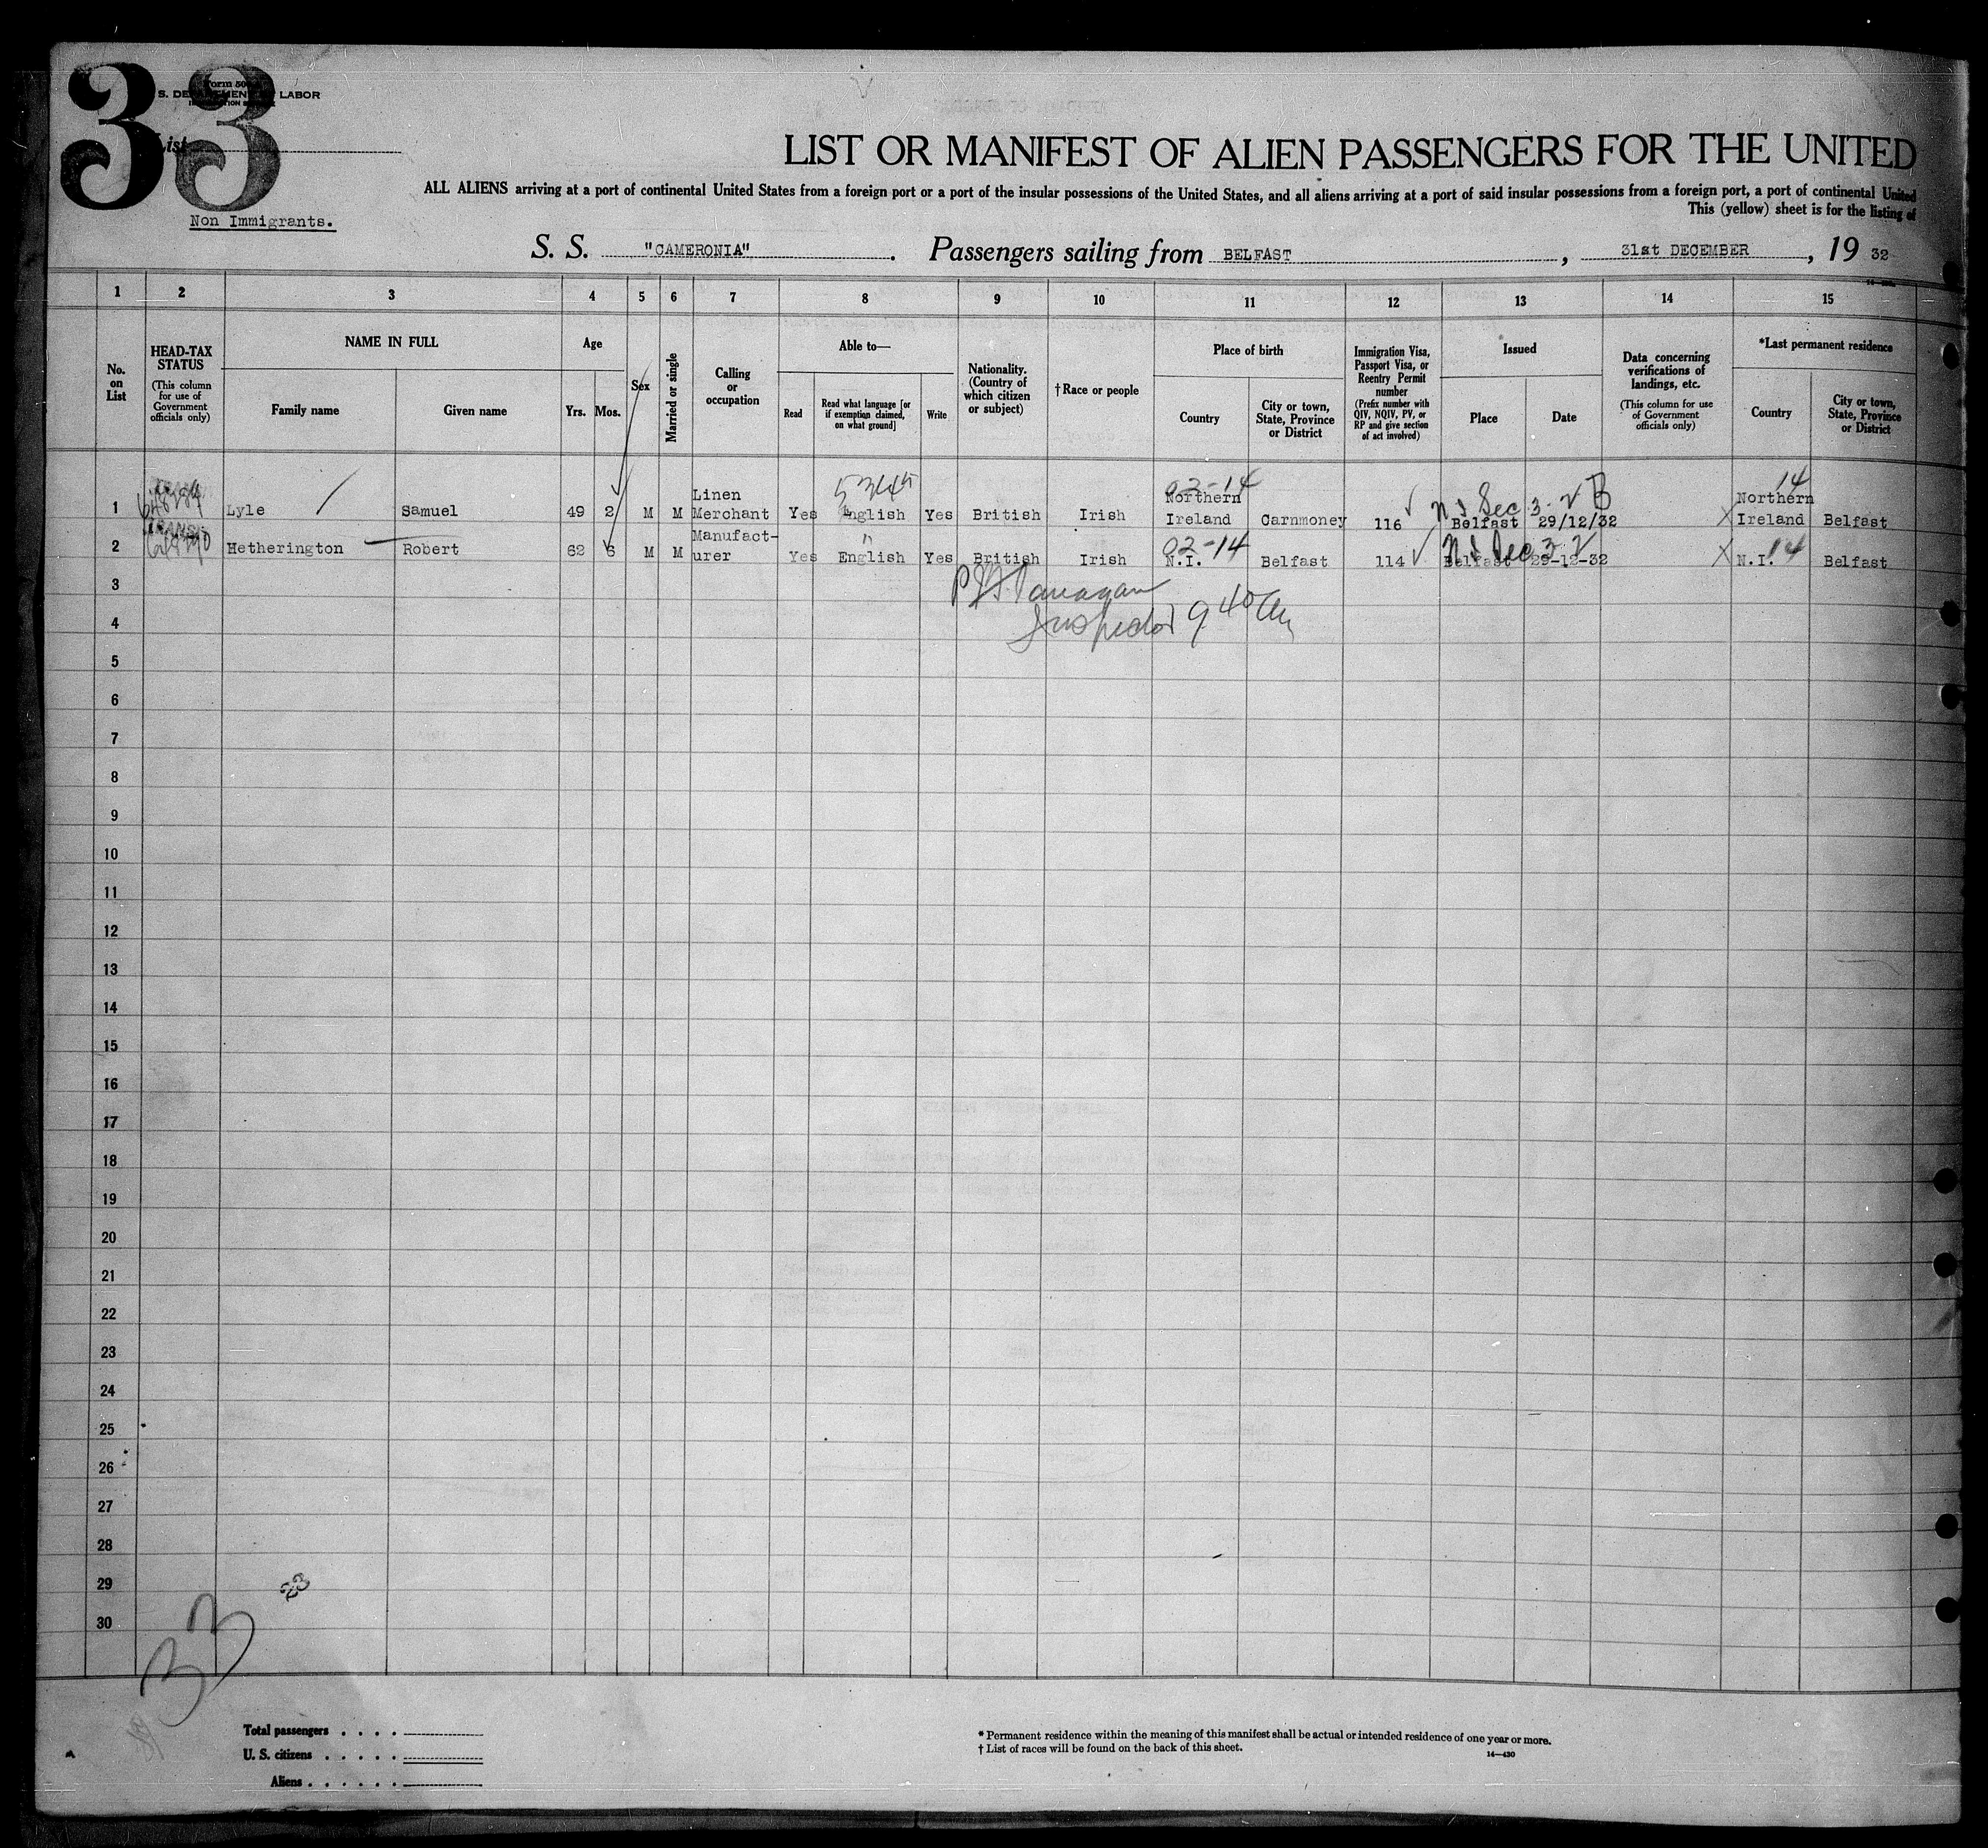 33
Form 50
S. DEPARTMENT LABOR
List
Non Immigrants.
LIST OR MANIFEST OF ALIEN PASSENGERS FOR THE UNITED
ALL ALIENS arriving at a port of continental United States from a foreign port or a port of the insular possessions of the United States, and all aliens arriving at a port of said insular possessions from a foreign port, a port of continental United
This (yellow) sheet is for the listing of
S. S. "CAMERONIA". Passengers sailing from BELFAST, 31st DECEMBER, 19 32
1 2 3 4 5 6 7 8 9 10 11 12 13 14 15
No. on List
HEAD-TAX STATUS
(This column for use of Government officials only)
NAME IN FULL
Family name Given name
Age
Yrs. Mos.
Sex
Married or single
Calling or occupation
Able to—
Read
Read what language [or if exemption claimed, on what ground]
Write
Nationality. (Country of which citizen or subject)
†Race or people
Place of birth
Country
City or town, State, Province or District
Immigration Visa, Passport Visa, or Reentry Permit number
(Prefix number with QIV, NQIV, PV, or RP and give section of act involved)
Issued
Place Date
Data concerning verifications of landings, etc.
(This column for use of Government officials only)
*Last permanent residence
Country
City or town, State, Province or District
1 Lyle Samuel 49 2 M M Linen Merchant Yes English Yes British Irish 02-14 Northern Ireland Carnmoney 116 Belfast 29/12/32 14 Northern Ireland Belfast
TRANSIT
2 Hetherington Robert 62 6 M M Manufact-urer Yes English Yes British Irish 02-14 N.I. Belfast 114 Belfast 29-12-32 N.I. 14 Belfast
3
Inspector 9 40 am
4
5
6
7
8
9
10
11
12
13
14
15
16
17
18
19
20
21
22
23
24
25
26
27
28
29
30
33
Total passengers . . . .
U. S. citizens . . . . .
Aliens . . . . . .
* Permanent residence within the meaning of this manifest shall be actual or intended residence of one year or more.
† List of races will be found on the back of this sheet.
14—430